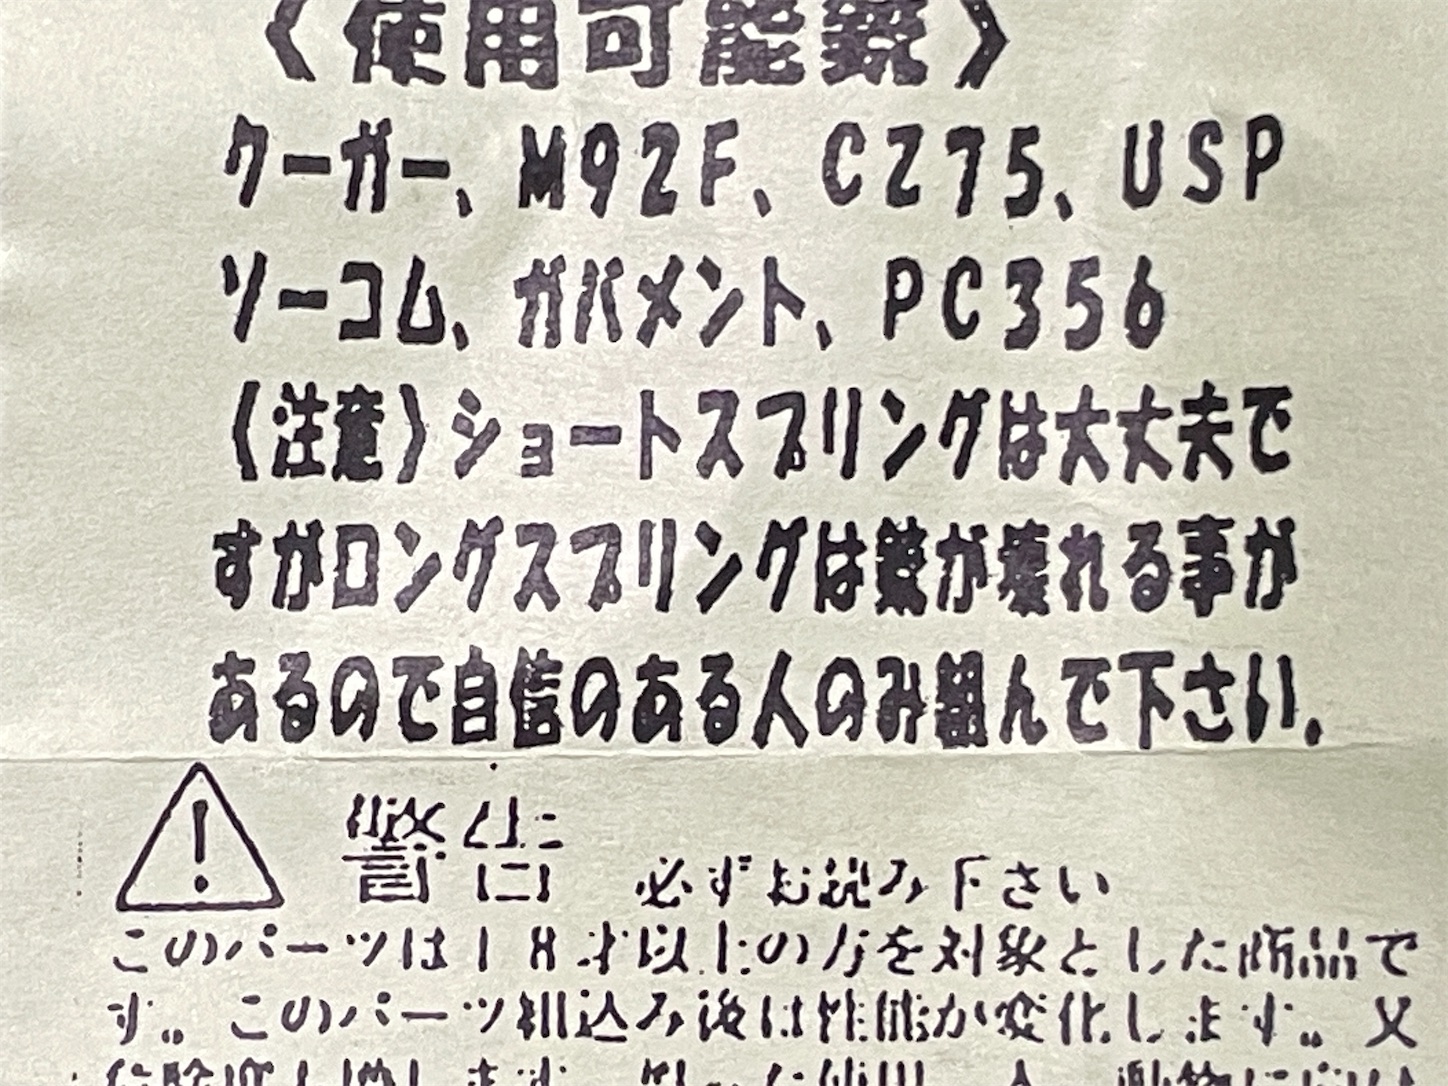 〈使用可能銃〉
クーガー、M92F、CZ75、USP
ソーコム、ガバメント、PC356
〈注意〉ショートスプリングは大丈夫で
すがロングスプリングは銃が壊れる事が
あるので自信のある人のみ組んで下さい。
警告 必ずお読み下さい
このパーツは18才以上の方を対象とした商品で
す。このパーツ組込み後は性能が変化します。又